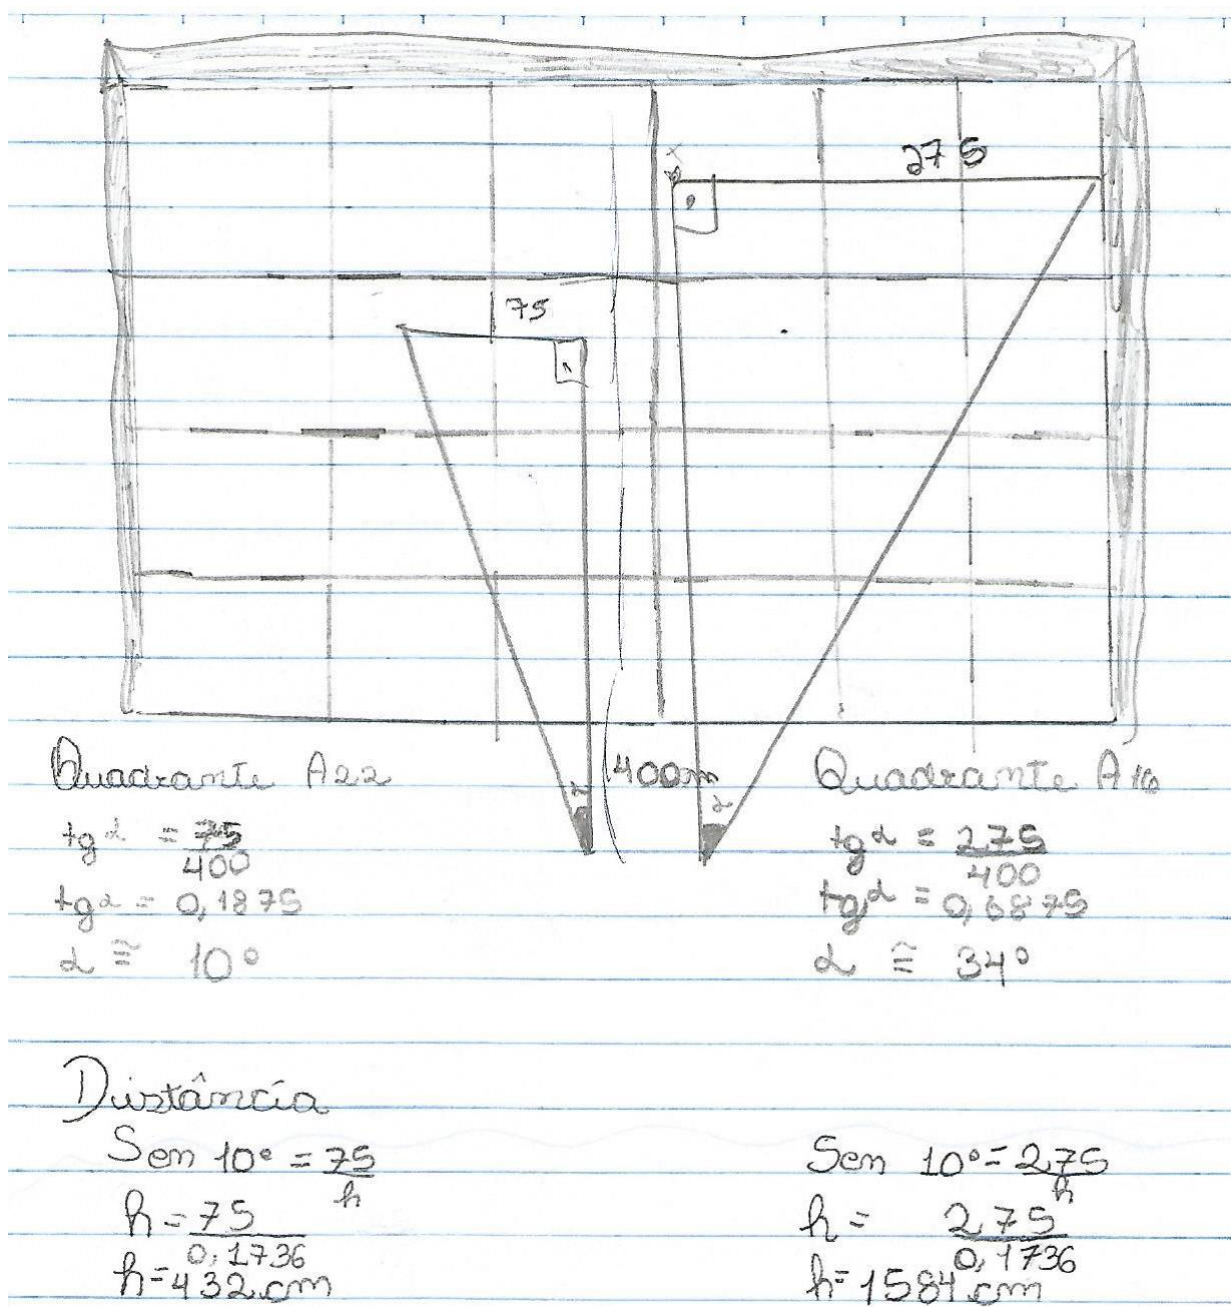 275
75
400m
α
α
Quadrante A22
tg α = 75/400
tg α = 0,1875
α ≅ 10°
Quadrante A16
tg α = 275/400
tg α = 0,6875
α ≅ 34°
Distância
Sen 10° = 75/h
h = 75/0,1736
h = 432 cm
Sen 10° = 275/h
h = 275/0,1736
h = 1584 cm